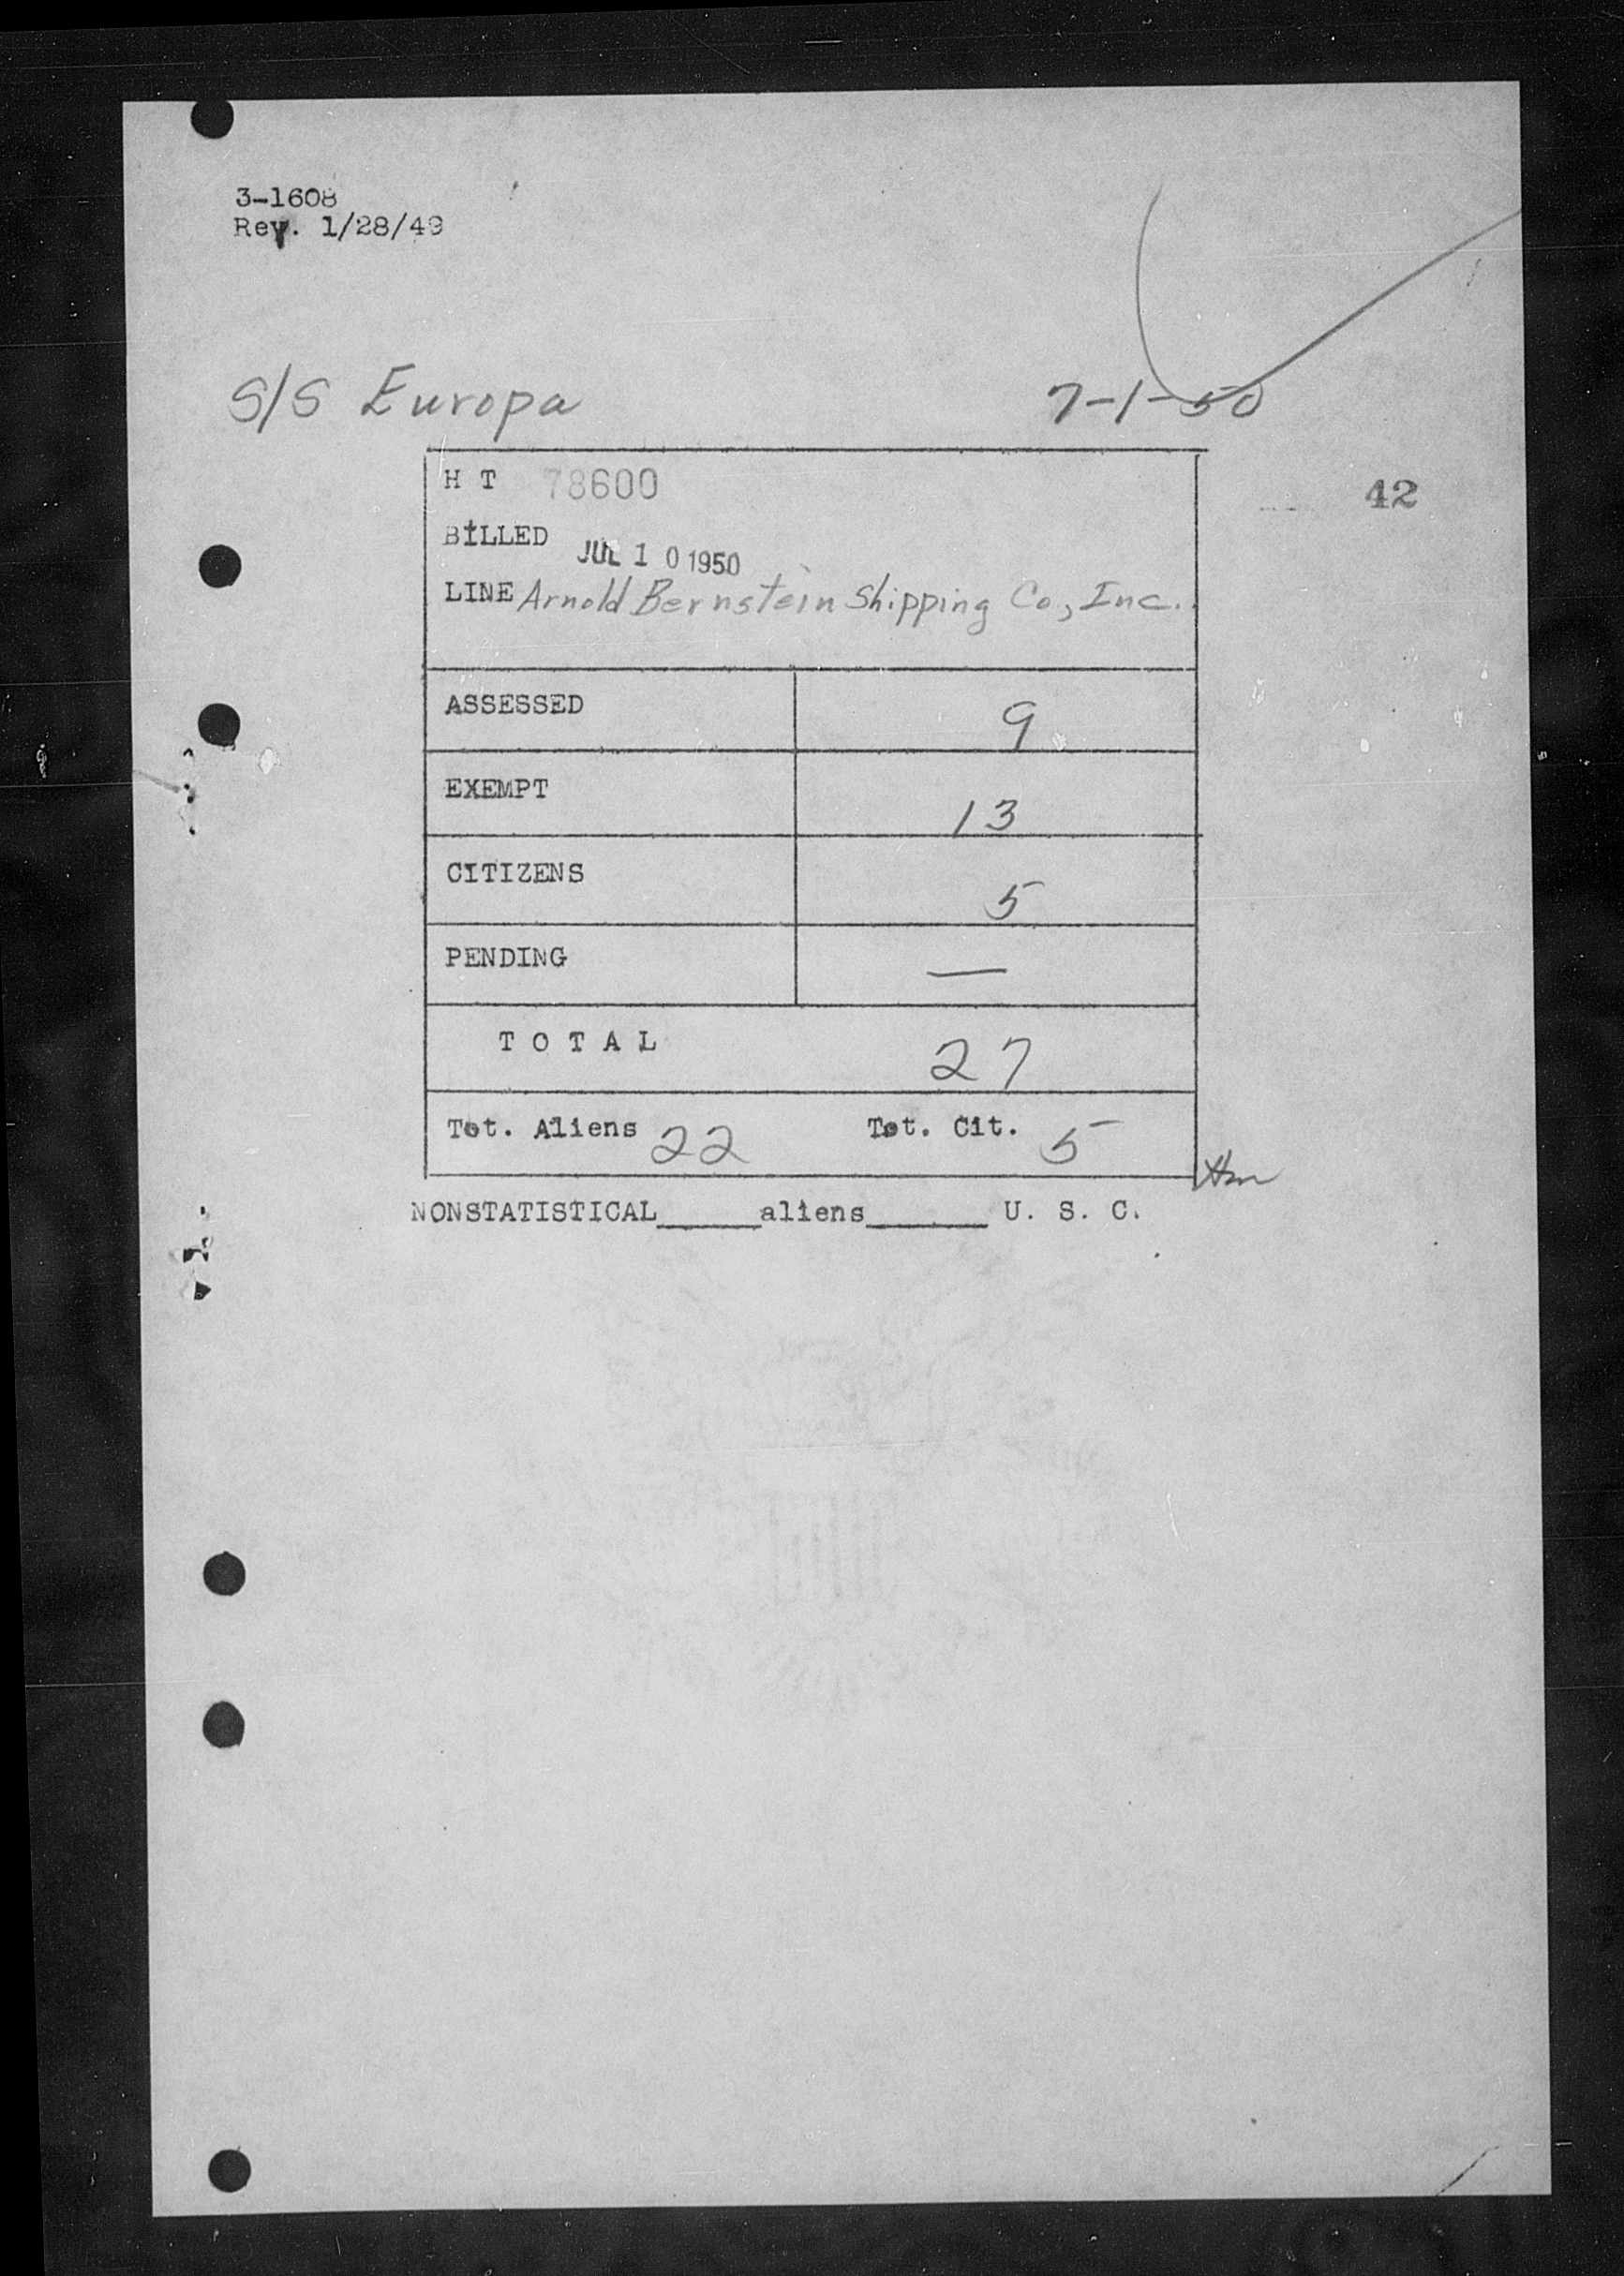 3-1608
Rev. 1/28/49
S/S Europa 7-1-50
H T 78600
42
BILLED JUL 10 1950
LINE Arnold Bernstein Shipping Co, Inc.
ASSESSED 9
EXEMPT 13
CITIZENS 5
PENDING —
T O T A L 27
Tot. Aliens 22 Tot. Cit. 5
NONSTATISTICAL_____aliens______ U. S. C.